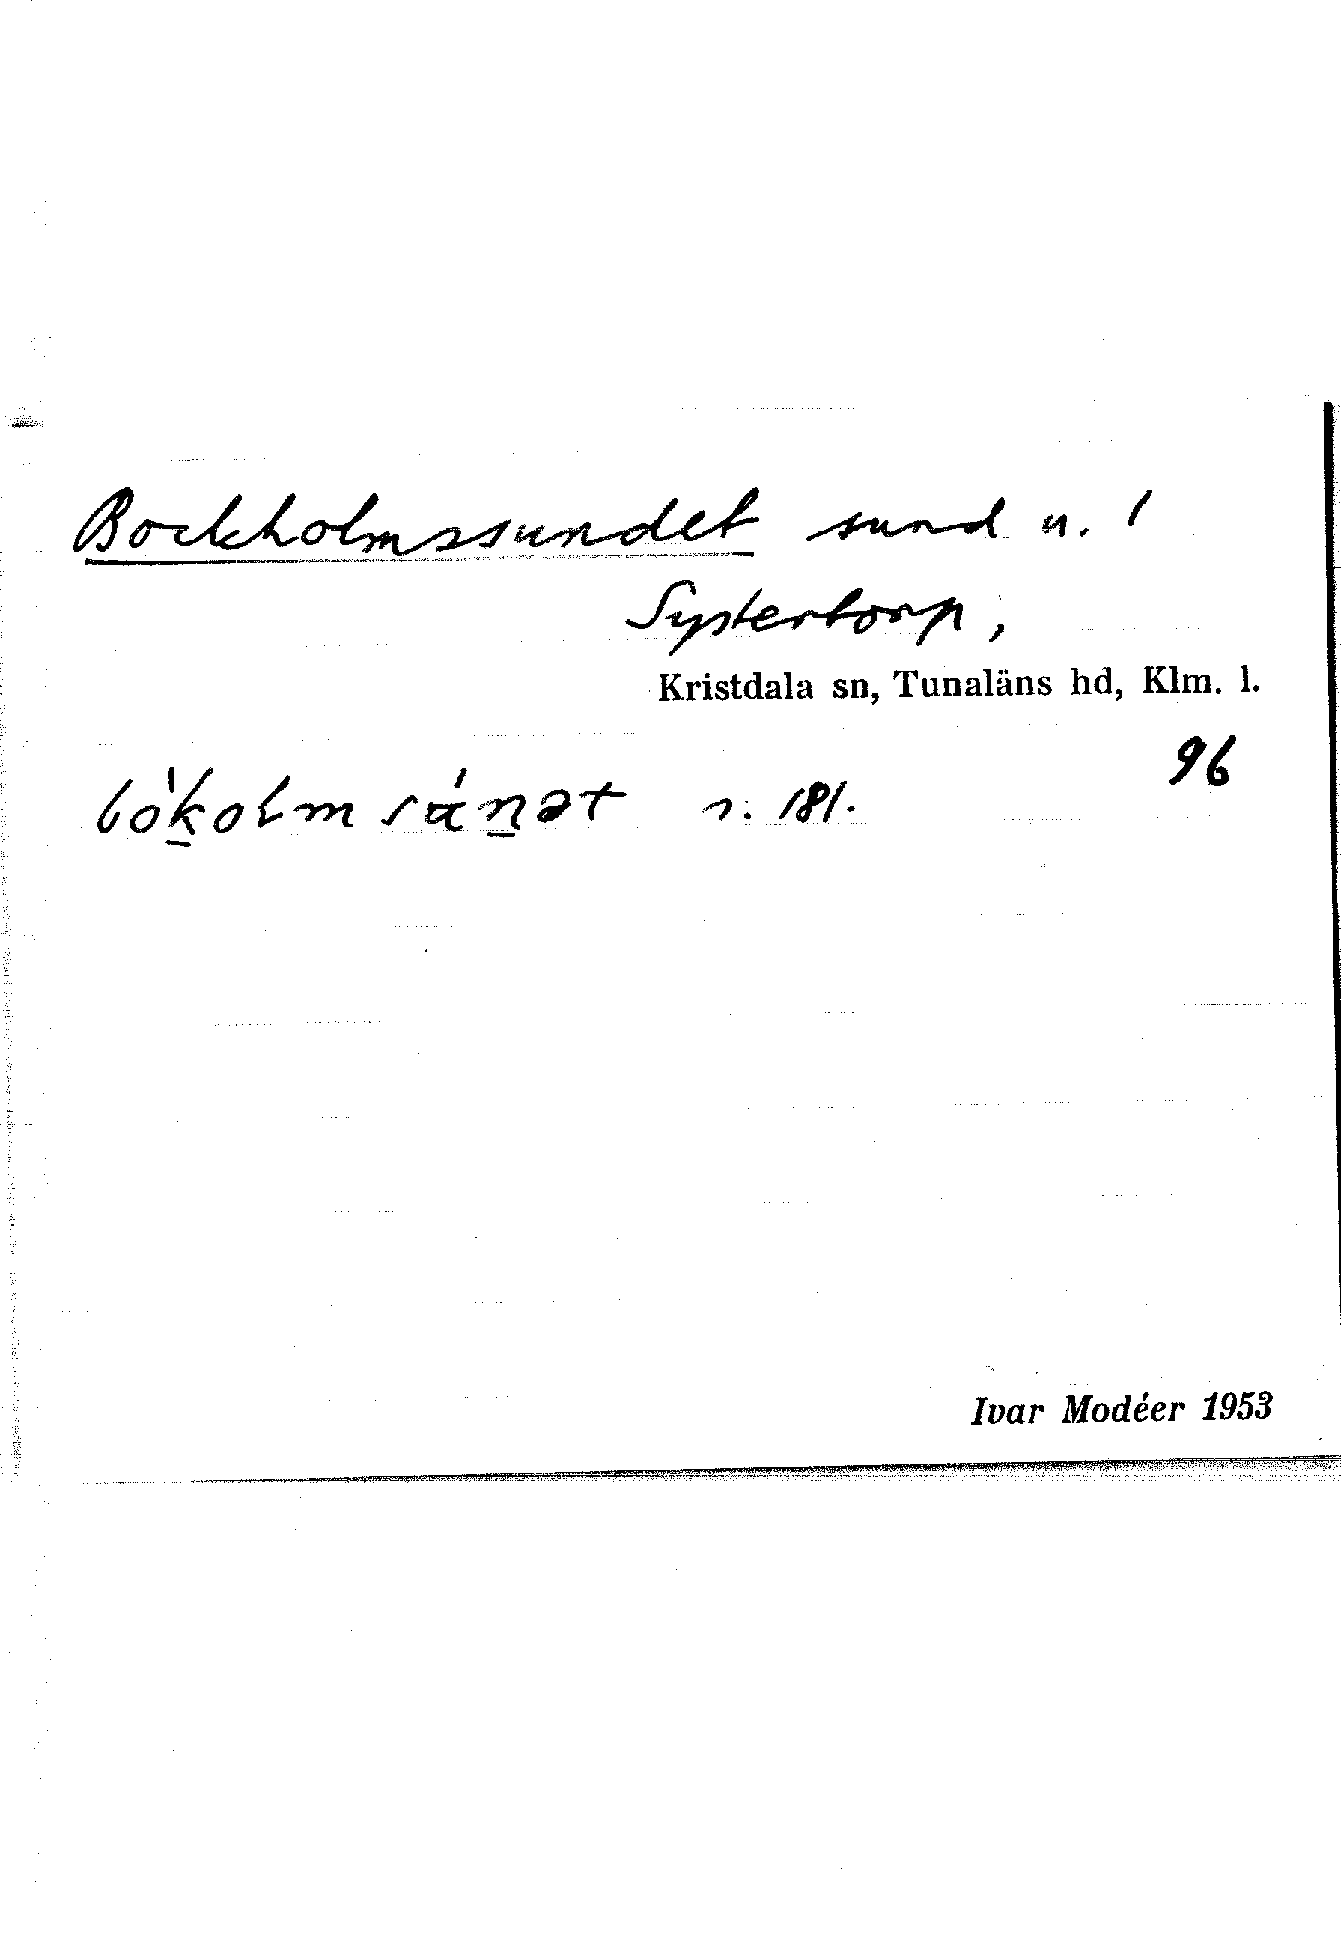 Bockholmssundet sund n. 1
Systertorp,
Kristdala sn, Tunaläns hd, Klm. l.
96
n. 181.
Ivar Modéer 1953